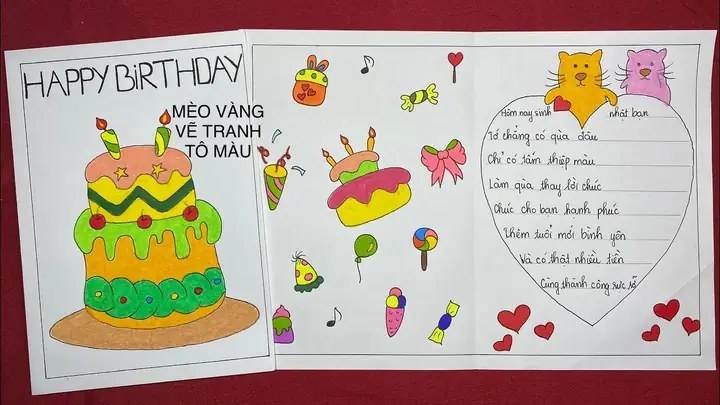 HAPPY BiRTHDAY
MÈO VÀNG
VẼ TRANH
TÔ MÀU
Hôm nay sinh nhật bạn
Tớ chẳng có quà đâu
Chỉ có tấm thiệp màu
Làm quà thay lời chúc
Chúc cho bạn hạnh phúc
Thêm tuổi mới bình yên
Và có thật nhiều tiền
Cùng thành công rực rỡ